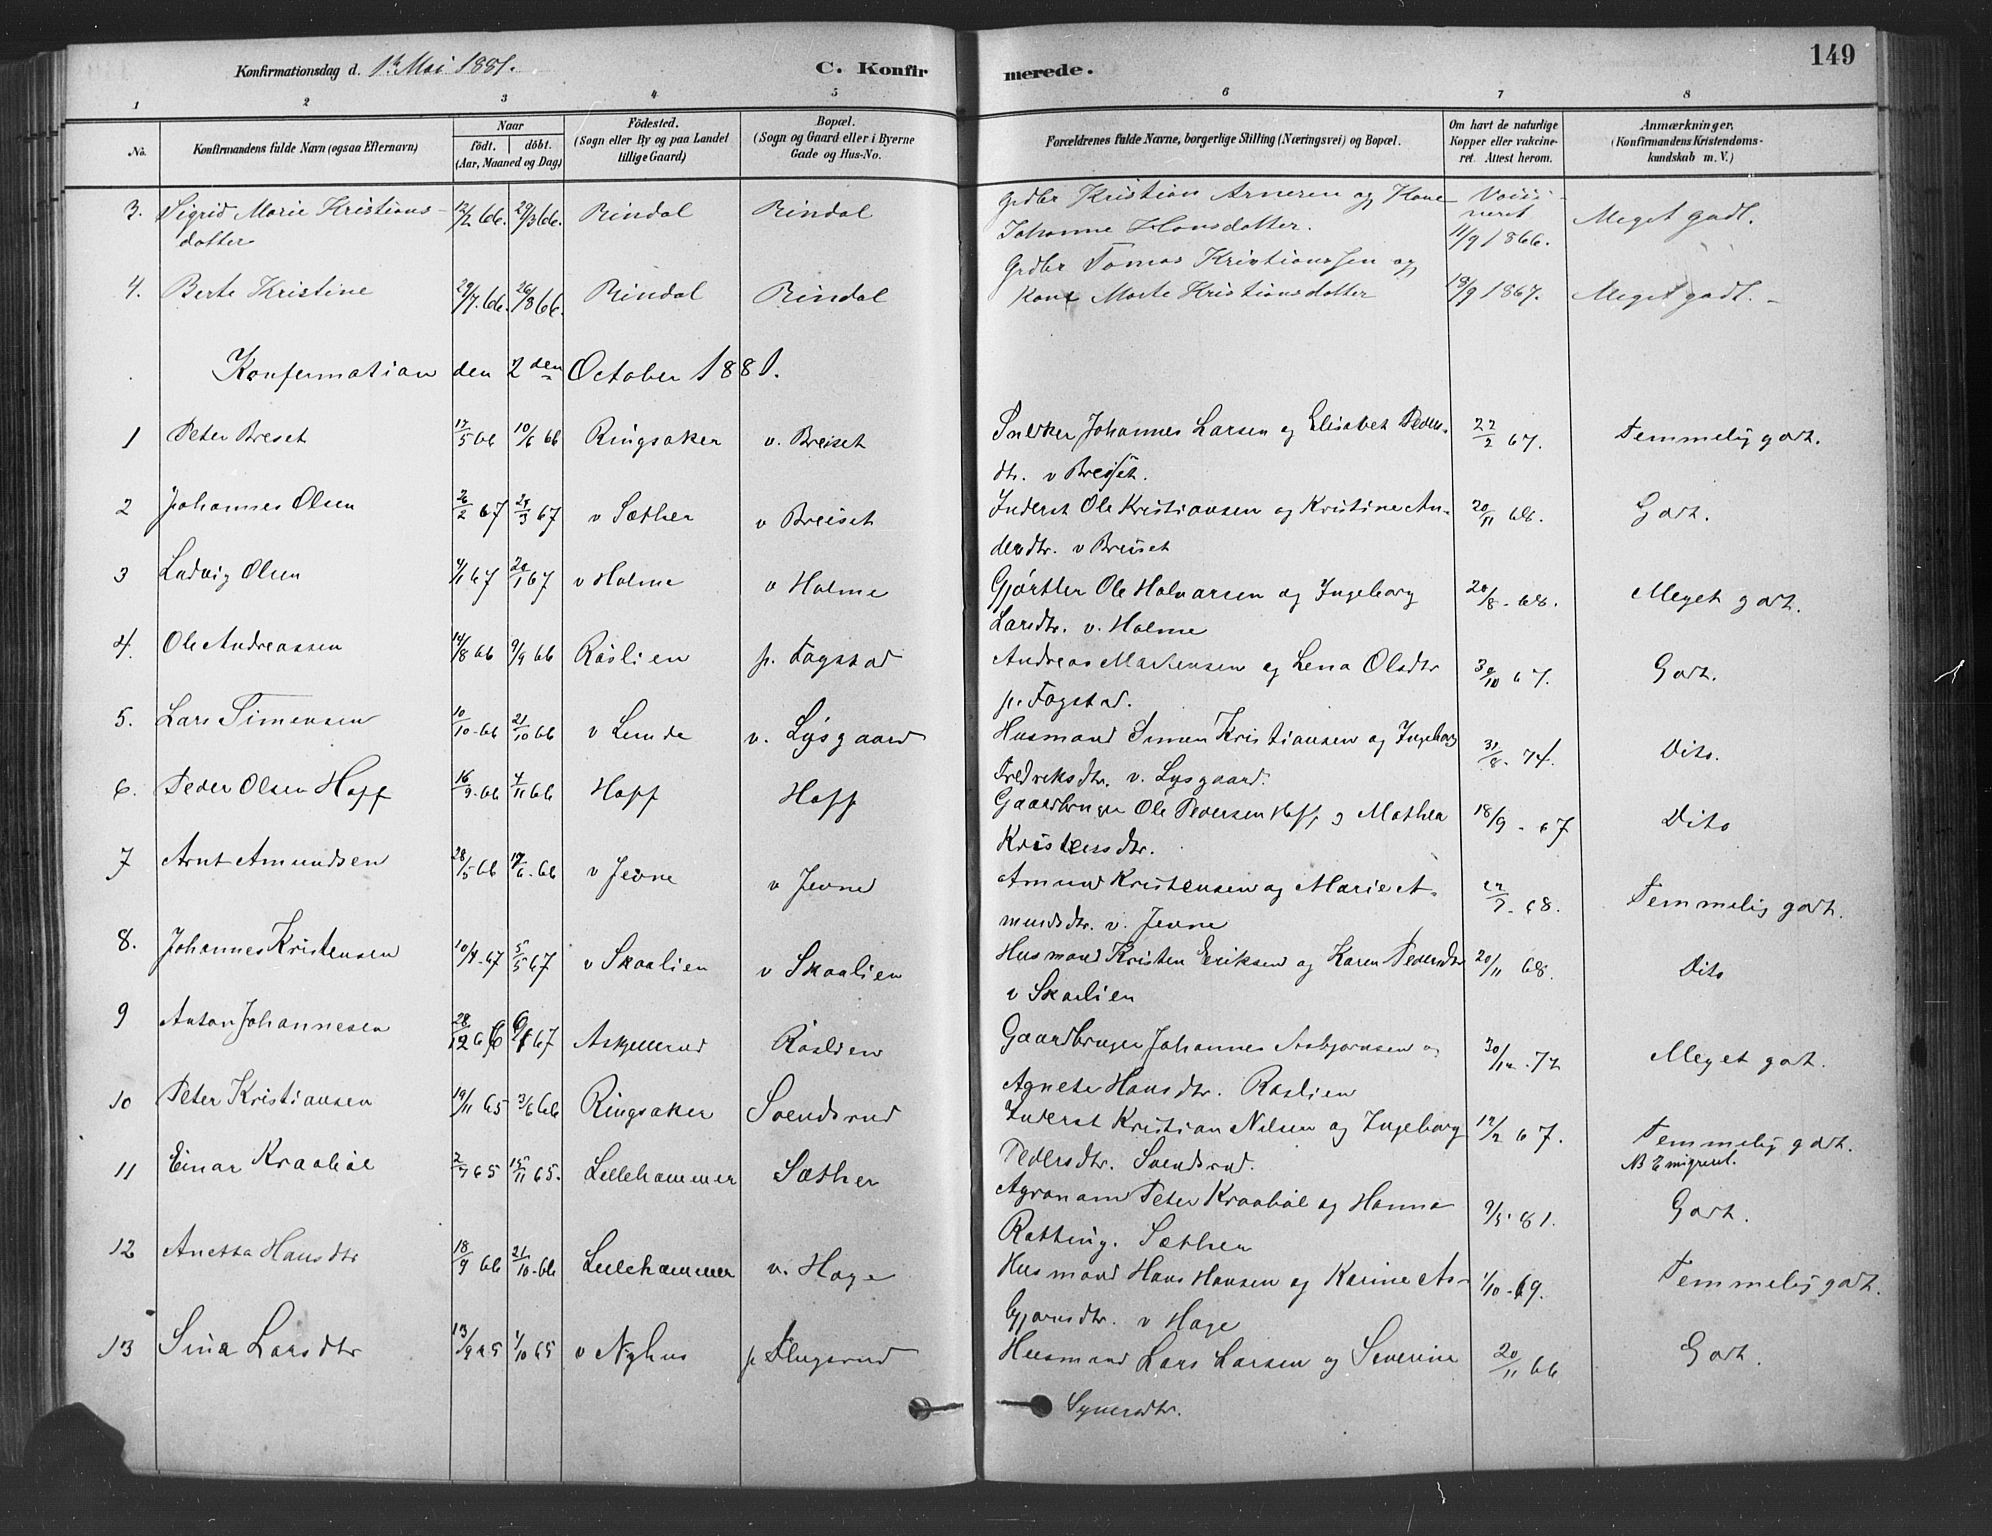 Konfirmationsdag d. 1ste Mai 1881. C. Konfirmerede. 149
1 2 3 4 5 6 7 8
No. Konfirmandens fulde Navn (ogsaa Efternavn) Naar födt. döbt. (Aar, Maaned og Dag) Födested. (Sogn eller By og paa Landet tillige Gaard) Bopæl. (Sogn og Gaard eller i Byerne Gade og Hus-No. Forældrenes fulde Navne, borgerlige Stilling (Næringsvei) og Bopæl. Om havt de naturlige Kopper eller vakcineret. Attest herom. Anmærkninger. (Konfirmandens Kristendomskundskab m. V.)
3. Sigrid Marie Kristiansdatter 12/2 66. 29/3 66. Rindal Rindal Grdbr Kristian Arnesen og Kone Johanne Hansdatter. 11/9 1866. Meget godt.
4. Berte Kristine 29/7 66. 26/8 66. Rindal Rindal Grdbr Tomas Kristianssen og Kone Marte Kristiansdatter 19/9 1867. Meget godt.
Konfermation den 2den October 1881.
1 Peter Breset 17/5 66 10/6 66 Ringsaker v. Breiset Snedker Johannes Larsen og Elisabet Pedersdtr. v Breiset. 22/2 67. Temmelig godt.
2 Johannes Olsen 26/2 67 24/3 67 v Sæther v Breiset Inderst Ole Kristiansen og Kristine Andersdtr. v Breiset 20/11 68. Godt.
3 Ludvig Olsen 4/1 67 20/1 67 v Holme v Holme Gjørtler Ole Halvorsen og Ingeborg Larsdtr. v. Holme 20/8 - 68. Meget godt.
4. Ole Andreassen 14/8 66 9/9 66 Röslien p. Fagstad Andreas Martensen og Lena Olsdtr p. Fagstad. 30/10 67. Godt.
5. Lars Simensen 10/10 - 66 21/10 66 v Lunde v. Lysgaard Husmand Simen Kristiansen og Ingeborg Fredriksdtr. v. Lysgaard. 74. Dito.
6. Peder Olsen Hoff 16/9 - 66 4/11 66 Hoff Hoff Gaardbruger Ole Pedersen Hoff og Mathea Kristensdtr. 18/9 - 67 Dito
7 Arnt Amundsen 28/5 66 17/6 - 66 v Jevne v Jevne Amund Kristensen og Marie Amundsdtr. v. Jevne 68. Temmelig godt.
8. Johannes Kristensen 10/4 - 67 5/5 67 v Skaalien v Skaalien Husmand Kristen Eriksen og Karen Pedersdtr v Skaalien 20/11 68. Dito
9 Anton Johannesen 28/12 66 6/1 67 Askjellrud Röslien Gaardbruger Johannes Asbjørnsen og Agnete Hansdtr. Röslien 30/12 - 72 Meget godt.
10 Peter Kristiansen 19/11 65 3/6 66 Ringsaker Svendsrud Inderst Kristian Nilsen og Ingeborg Pedersdtr. Svendsrud. 12/2 67. Temmelig godt. NB Emigreret.
11 Einar Kraabøl 2/9 65 15/11 65. Lillehammer Sæther Agronom Peter Kraabøl og Hanna Rotting. Sæther 9/5 81. Godt.
12 Anetta Hansdtr 18/9 66 21/10 - 66 Lillehammer v. Hage Husmand Hans Hansen og Karine Asbjørnsdtr. v Hage 1/10 - 69. Temmelig godt.
13 Sina Larsdtr 13/9 65 1/10 65 v Nyhus p Flugsrud Husmand Lars Larsen og Severine Syversdtr. 20/11 66 Godt.